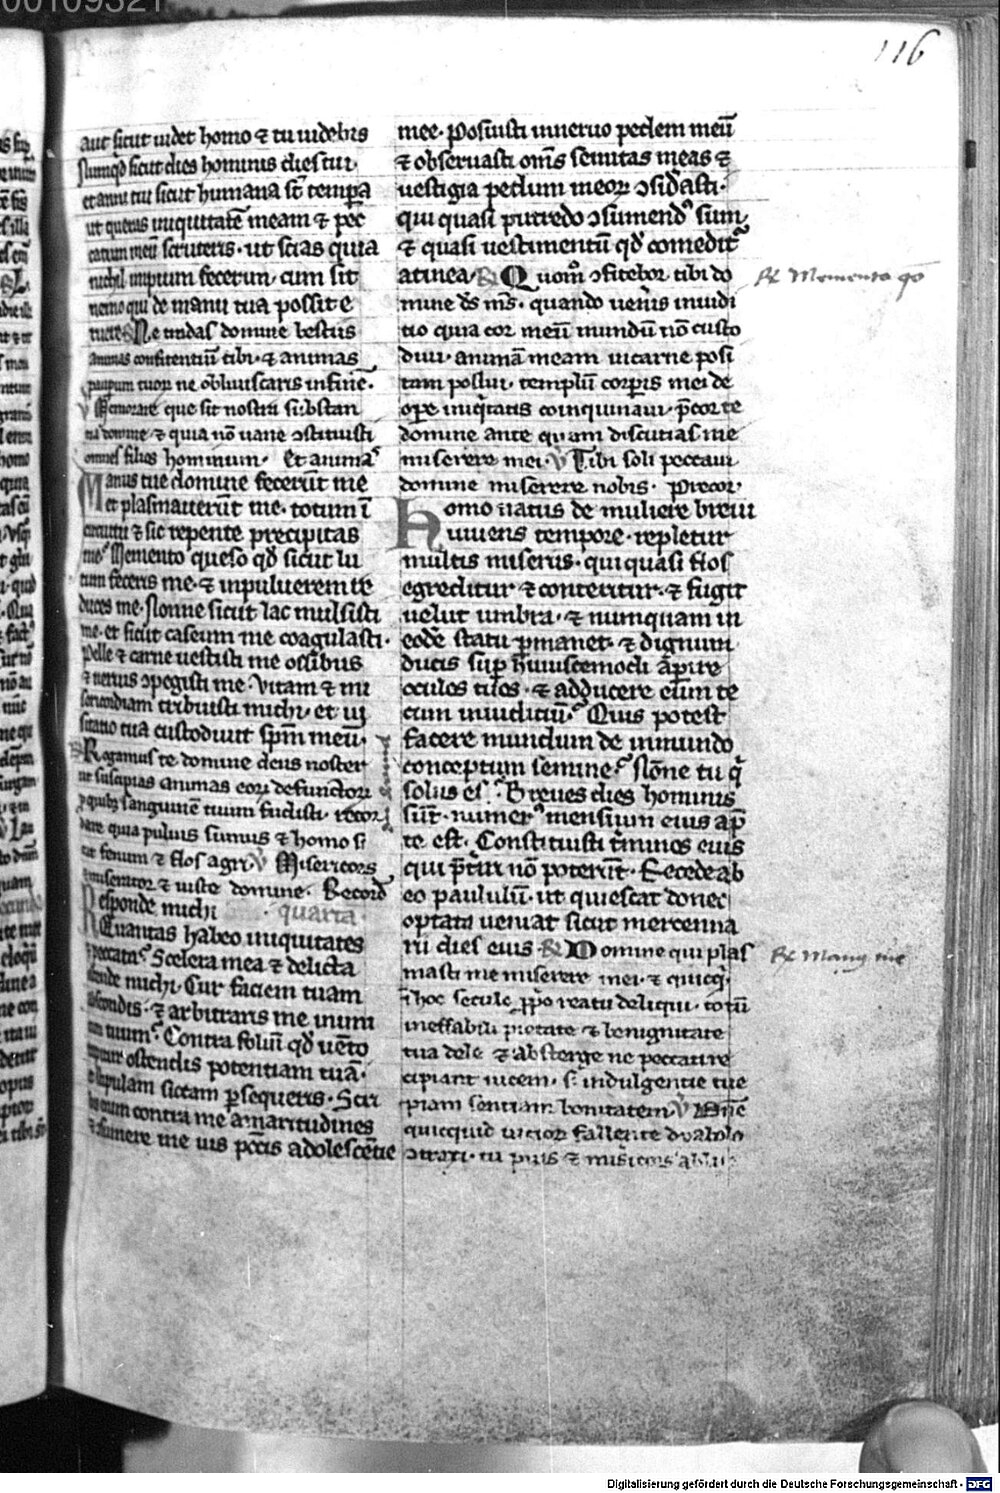 00109321
116
aut sicut uidet homo ⁊ tu uidebis
Numqͥd sicut dies hominis dies tui·
et anni tui sicut humana st̄ tempora
ut queras iniquitatē meam ⁊ pec
catum meū scruteris· ut scias quia
nichil impium fecerim· cum sit
nemo qui de manu tua possit e
ruere ℟ Ne tradas domine bestiis
animas confitentiū tibi· ⁊ animas
pauperum tuoꝝ ne obliuiscaris in finē·
℣ Memorare que sit nostra substan
tia domine ⁊ quia nō uane ꝯstituisti
omnes filios hominum· Et animas
Manus tue domine fecerūt me
et plasmauerūt me· totum ī
circuitu ⁊ sic repente precipitas
me· Memento queso qd̄ sicut lu
tum feceris me· ⁊ in puluerem re
duces me· Nonne sicut lac mulsisti
me· et sicut caseum me coagulasti·
Pelle ⁊ carne uestisti me ossibus
⁊ neruis ꝯpegisti me· Vitam ⁊ mi
sericordiam tribuisti michi· et ui
sitatio tua custodiuit sp̄m meū·
℟ Rogamus te domine deus noster
ut suscipias animas eoꝝ defunctoꝝ
ꝓ quibꝫ sanguinē tuum fudisti· recor
dare quia puluis sumus ⁊ homo si
cut fenum ⁊ flos agri· ℣ Misericors
⁊ miserator ⁊ iuste domine· Record
Responde michi quarta·
Quantas habeo iniquitates
⁊ peccata· Scelera mea ⁊ delicta
ostende michi· Cur faciem tuam
abscondis· ⁊ arbitraris me inimi
cum tuum· Contra foliū qd̄ uēto
rapitur ostendis potentiam tuā·
⁊ stipulam siccam ꝑsequeris· Scri
bis enim contra me amaritudines
⁊ ꝯsumere me uis pcc̄is adolescētie
mee· Posuisti in neruo pedem meū
⁊ obseruasti om̄s semitas meas ⁊
uestigia pedum meoꝝ ꝯsid̓asti·
qui quasi putredo ꝯsumendꝰ sum
⁊ quasi uestimentū qd̄ comedit̉
a tinea· ℟ Quom̄ ꝯfitebor tibi do
mine ds̄ ms̄· quando ueneris in iudi
tio quia cor meū mundū nō custo
diui· animā meam in carne posi
tam pollui· templū corꝑis mei de
oꝑe iniqͥtatis coinquinaui· p̄cor te
domine ante quam discutias me
miserere mei· ℣ Tibi soli peccaui
domine miserere nobis· Precor·
Homo natus de muliere breui
uiuens tempore· repletur
multis miseriis· qui quasi flos
egreditur ⁊ conteritur· ⁊ fugit
uelut umbra· ⁊ numquam in
eodē statu ꝑmanet· ⁊ dignum
ducis suꝑ huiuscemodi aꝑire
oculos tuos· ⁊ adducere eum te
cum in iudiciū· Quis potest
facere mundum de inmundo
conceptum semine· Nōne tu qͥ
solus es· Breues dies hominis
sūt· numerꝰ mensium eius ap̄
te est· Constituisti t̉minos eius
qui p̄t̉iri nō poterūt· Recede ab
eo paululū· ut quiescat donec
optata ueniat sicut mercenna
rii dies eius· ℟ Domine qui plas
masti me miserere mei· ⁊ quicqͥ
ī hoc seculo reatu deliqui· totū
ineffabili pietate ⁊ benignitate
tua dele ⁊ absterge ne peccatū re
cipiant uicem· s· indulgentie tue
piam sentiam bonitatem ℣ Dn̄e
quicquid uicior fallente dyabolo
ꝯtraxi· tu pius ⁊ misericors ablu·
℟ Memento qo
℟ Manꝰ tue
Digitalisierung gefördert durch die Deutsche Forschungsgemeinschaft - DFG